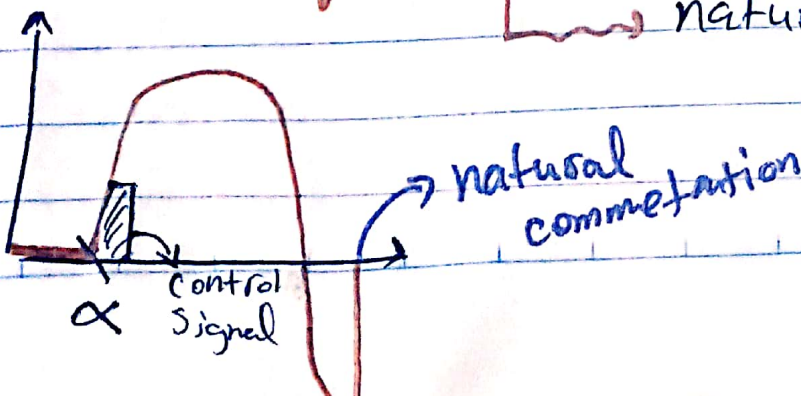 natu
natural
commetation
control
signal
α